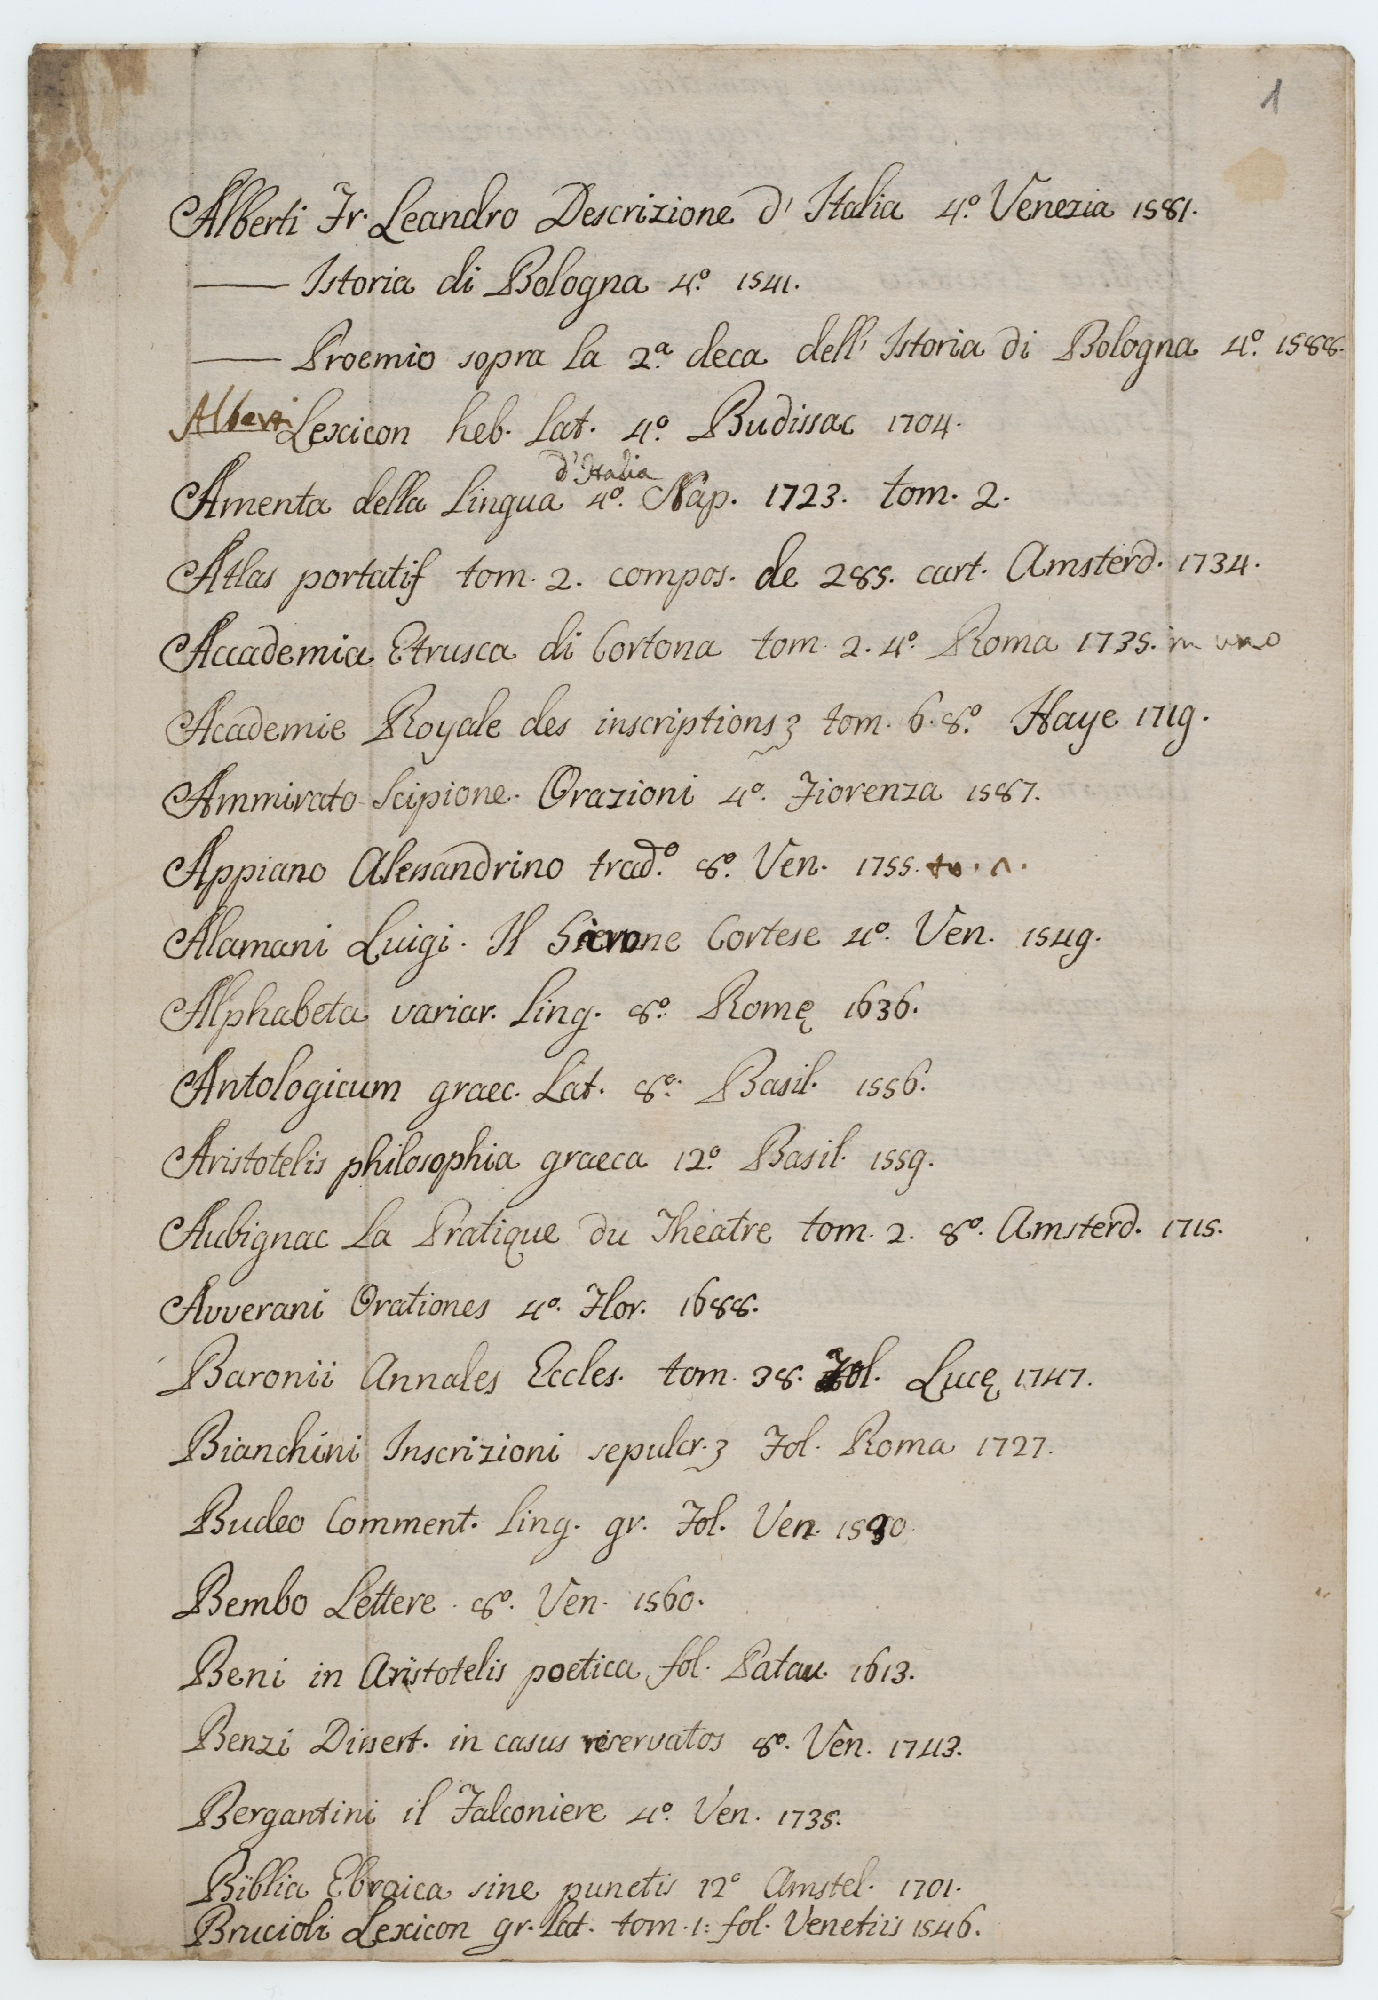 1
Alberti Fr. Leandro Descrizione d' Italia 4.º Venezia 1581.
—— Istoria di Bologna 4.º 1541.
—— Proemio sopra la 2.ª deca dell' Istoria di Bologna 4.º 1588.
Alberti Lexicon heb. Lat. 4.º Budissae 1704.
d'Italia
Amenta della Lingua 4.º Nap. 1723. tom. 2.
Atlas portatif tom. 2. compos. de 285. cart. Amsterd. 1734.
Accademia Etrusca di Cortona tom. 2. 4.º Roma 1735. in uno
Academie Royale des inscriptions tom. 6. 8.º Haye 1719.
Ammirato Scipione. Orazioni 4.º Fiorenza 1587.
Appiano Alessandrino trad.º 8.º Ven. 1755. to. 1.
Alamani Luigi. Il Girone Cortese 4.º Ven. 1549.
Alphabeta variar. Ling. 8.º Romę 1636.
Antologicum graec. Lat. 8.º Basil. 1556.
Aristotelis philosophia graeca 12.º Basil. 1559.
Aubignac La Pratique du Theatre tom. 2. 8.º Amsterd. 1715.
Avverani Orationes 4.º Flor. 1688.
Baronii Annales Eccles. tom. 38. Fol. Lucę 1747.
Bianchini Inscrizioni sepulcr. Fol. Roma 1727.
Budeo Comment. Ling. gr. Fol. Ven.
Bembo Lettere. 8.º Ven. 1560.
Beni in Aristotelis poetica fol. Patau. 1613.
Benzi Dissert. in casus reservatos 8.º Ven. 1743.
Bergantini il Falconiere 4.º Ven. 1735.
Biblia Ebraica sine punctis 12º Amstel. 1701.
Brucioli Lexicon gr. Lat. tom. 1: fol. Venetiis 1546.